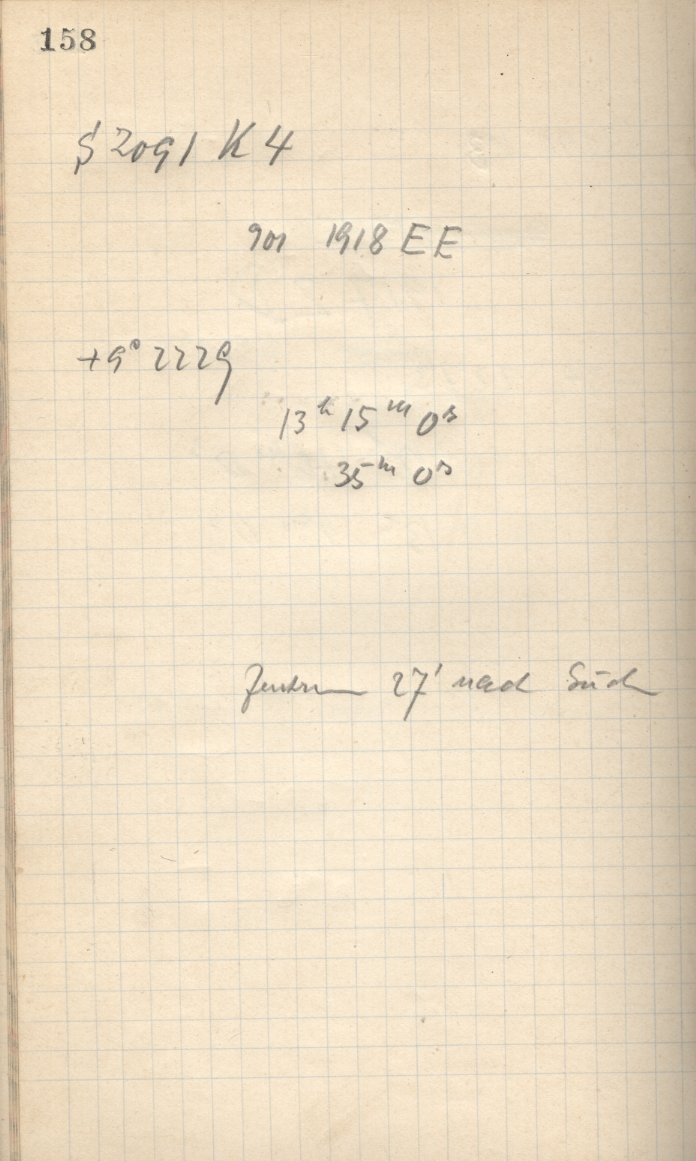 158
S 2091 K 4
901 1918 EE
+9° 2229
13ʰ 15ᵐ 0ˢ
35ᵐ 0ˢ
Zentrum 27' nach Süden